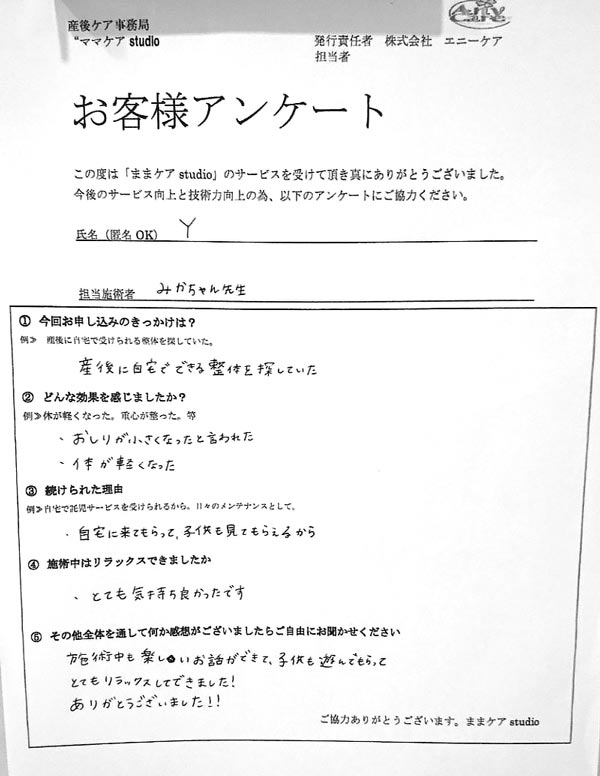 産後ケア事務局
“ママケア studio
Any
Care
発行責任者 株式会社 エニーケア
担当者
お客様アンケート
この度は「ままケア studio」のサービスを受けて頂き真にありがとうございました。
今後のサービス向上と技術力向上の為、以下のアンケートにご協力ください。
氏名（匿名 OK） Y
担当施術者 みかちゃん先生
① 今回お申し込みのきっかけは？
例≫ 産後に自宅で受けられる整体を探していた。
産後に自宅でできる整体を探していた
② どんな効果を感じましたか？
例≫体が軽くなった。重心が整った。等
・おしりが小さくなったと言われた
・体が軽くなった
③ 続けられた理由
例≫自宅で託児サービスを受けられるから、日々のメンテナンスとして。
・自宅に来てもらって、子供も見てもらえるから
④ 施術中はリラックスできましたか
・とても気持ち良かったです
⑤ その他全体を通して何か感想がございましたらご自由にお聞かせください
施術中も楽しいお話ができて、子供も遊んでもらって
とてもリラックスしてできました！
ありがとうございました！！
ご協力ありがとうございます。ままケア studio